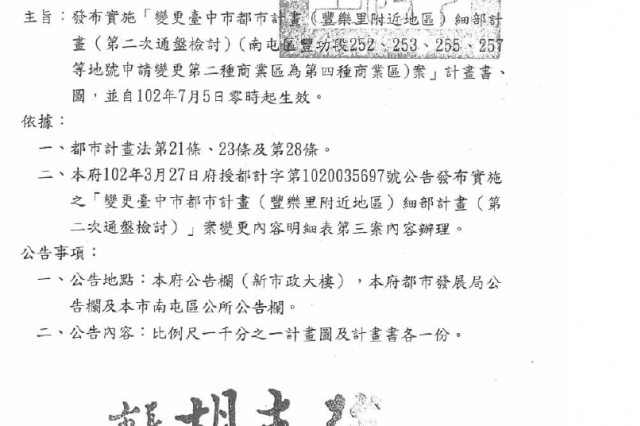 主旨：發布實施「變更臺中市都市計畫（豐樂里附近地區）細部計
畫（第二次通盤檢討）(南屯區豐功段252、253、255、257
等地號申請變更第二種商業區為第四種商業區)案」計畫書、
圖，並自102年7月5日零時起生效。
依據：
一、都市計畫法第21條、23條及第28條。
二、本府102年3月27日府授都計字第1020035697號公告發布實施
之「變更臺中市都市計畫（豐樂里附近地區）細部計畫（第
二次通盤檢討）」案變更內容明細表第三案內容辦理。
公告事項：
一、公告地點：本府公告欄（新市政大樓），本府都市發展局公
告欄及本市南屯區公所公告欄。
二、公告內容：比例尺一千分之一計畫圖及計畫書各一份。
市長 胡